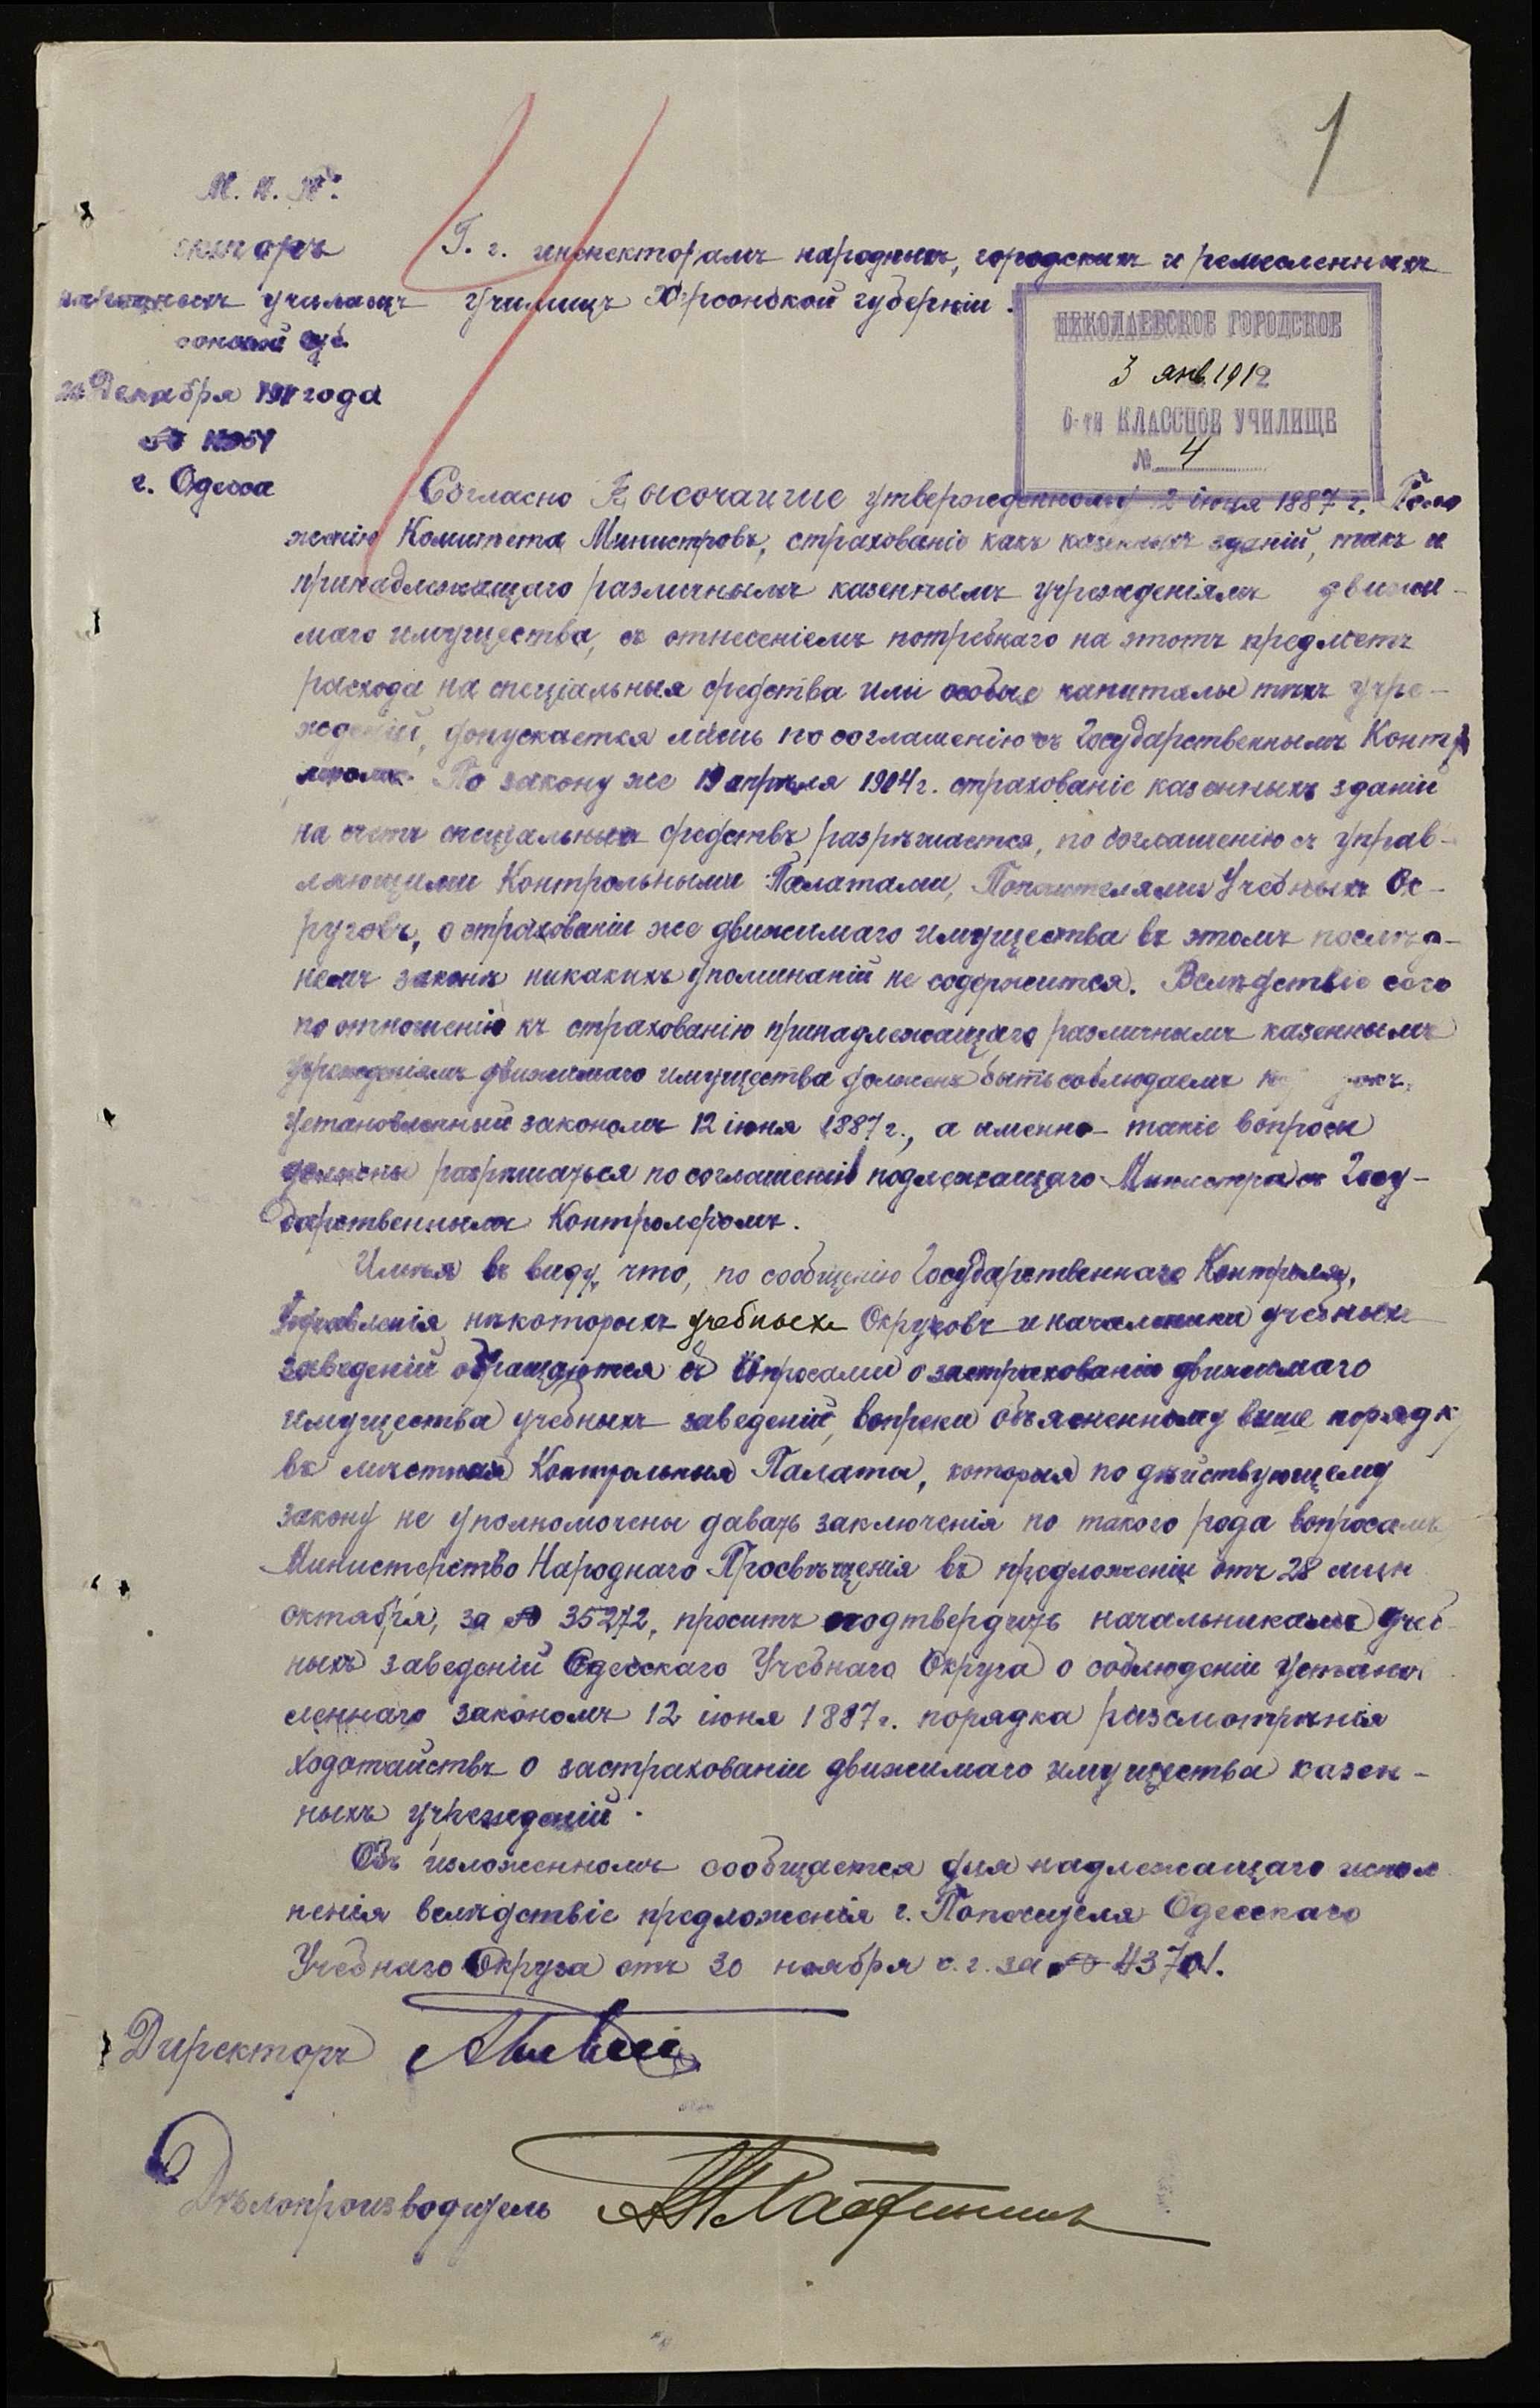 1
М. Н. П.
Директоръ
народныхъ училищъ
Херсонской губ.
Декабря 1911 года
№
г. Одесса
Г. г. инспекторамъ народныхъ, городскихъ и ремесленныхъ
училищъ Херсонской губерніи.
НИКОЛАЕВСКОЕ ГОРОДСКОЕ
3 янв. 1912
6-ти КЛАССНОЕ УЧИЛИЩЕ
№ 4
Согласно Высочайше утвержденному 2 іюня 1887 г. Поло
женію Комитета Министровъ, страхованіе какъ казенныхъ зданій, такъ и
принадлежащаго различнымъ казеннымъ учрежденіямъ движи-
маго имущества, съ отнесеніемъ потребнаго на этотъ предметъ
расхода на спеціальныя средства или особые капиталы тѣхъ учре-
жденій, допускается лишь по соглашенію съ Государственнымъ Контро
леромъ. По закону же 19 апрѣля 1904 г. страхованіе казенныхъ зданій
на счетъ спеціальныхъ средствъ разрѣшается, по соглашенію съ управ-
ляющими Контрольными Палатами, Попечителями Учебныхъ Ок-
руговъ, о страхованіи же движимаго имущества въ этомъ послѣд-
немъ законѣ никакихъ упоминаній не содержится. Вслѣдствіе сего
по отношенію къ страхованію принадлежащаго различнымъ казеннымъ
учрежденіямъ движимаго имущества долженъ быть соблюдаемъ
установленный закономъ 12 іюня 1887 г., а именно - такіе вопросы
должны разрѣшаться по соглашенію подлежащаго Министра съ Госу-
дарственнымъ Контролеромъ.
Имѣя въ виду, что, по сообщенію Государственнаго Контроля,
Управленія нѣкоторыхъ учебныхъ Округовъ и начальники учебныхъ
заведеній обращаются съ вопросами о застрахованіи движимаго
имущества учебныхъ заведеній, вопреки объясненному выше порядку
въ мѣстныя Контрольныя Палаты, которыя по дѣйствующему
закону не уполномочены давать заключенія по такого рода вопросамъ
Министерство Народнаго Просвѣщенія въ предложеніи отъ 28 мин
октября, за № 35272, проситъ подтвердить начальникамъ учеб-
ныхъ заведеній Одесскаго Учебнаго Округа о соблюденіи устано
вленнаго закономъ 12 іюня 1887 г. порядка разсмотрѣнія
ходатайствъ о застрахованіи движимаго имущества казен-
ныхъ учрежденій.
Объ изложенномъ сообщается для надлежащаго испол
ненія вслѣдствіе предложенія г. Попечителя Одесскаго
Учебнаго Округа отъ 30 ноября с. г. за № 43701.
Директоръ
Дѣлопроизводитель